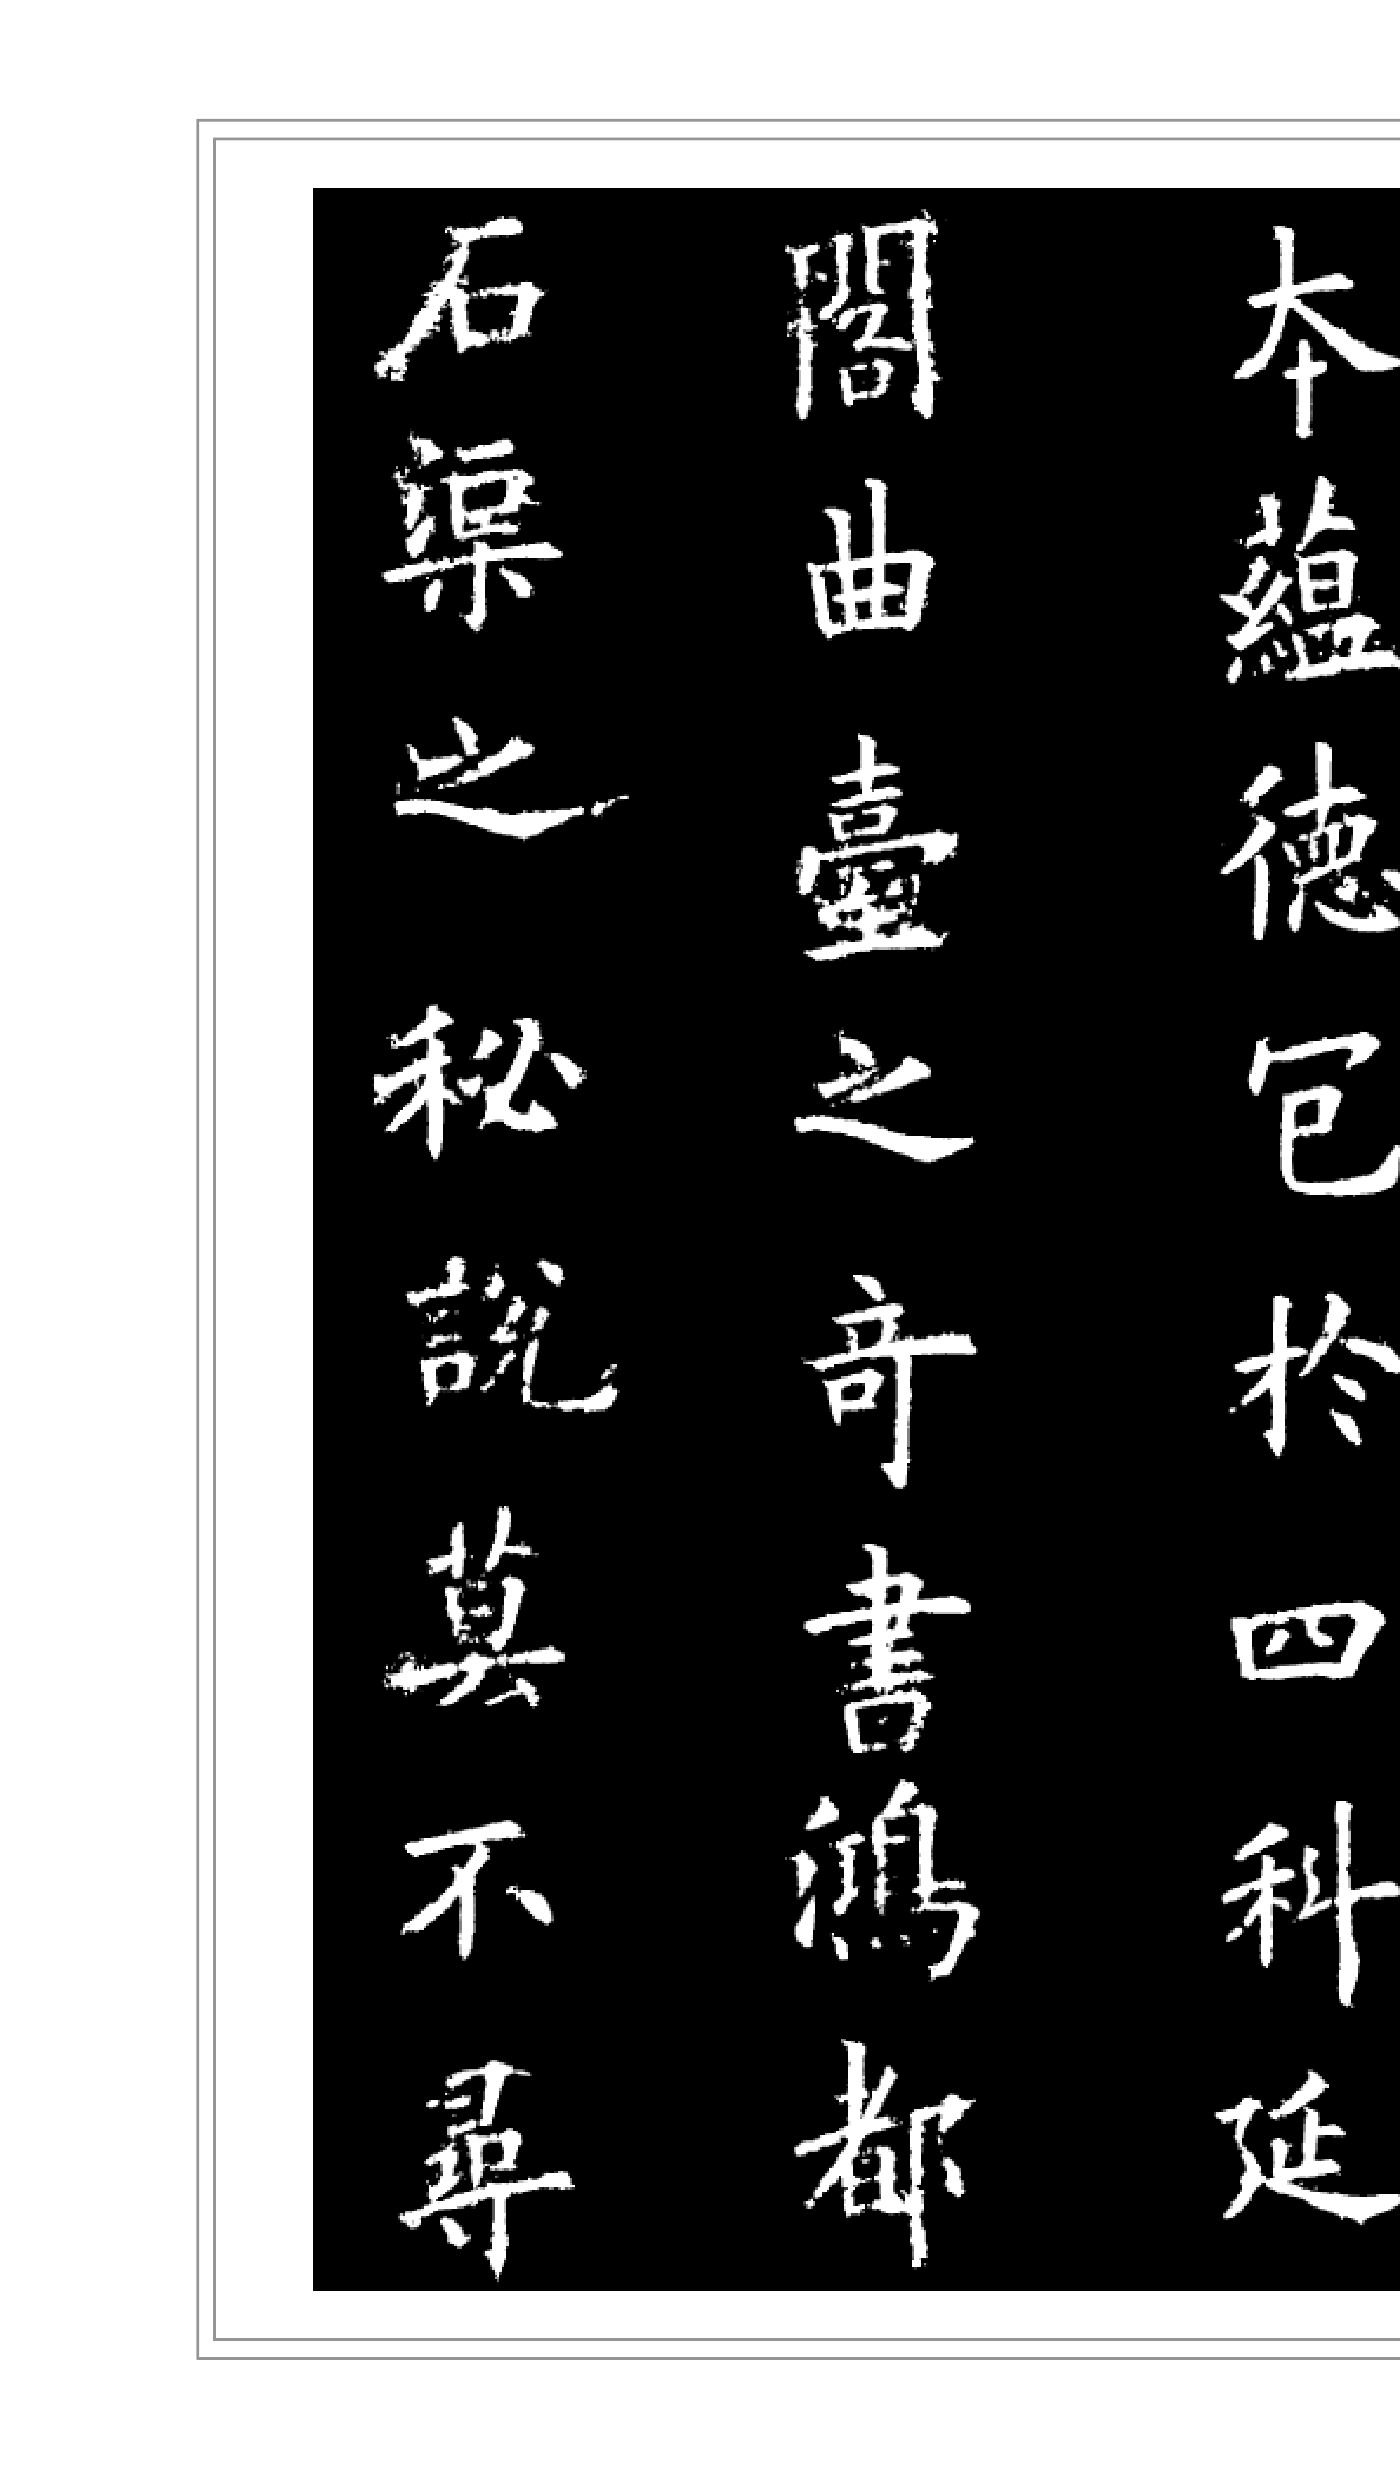 本蘊德冠於四科延
閣曲臺之奇書鴻都
石渠之秘說莫不尋